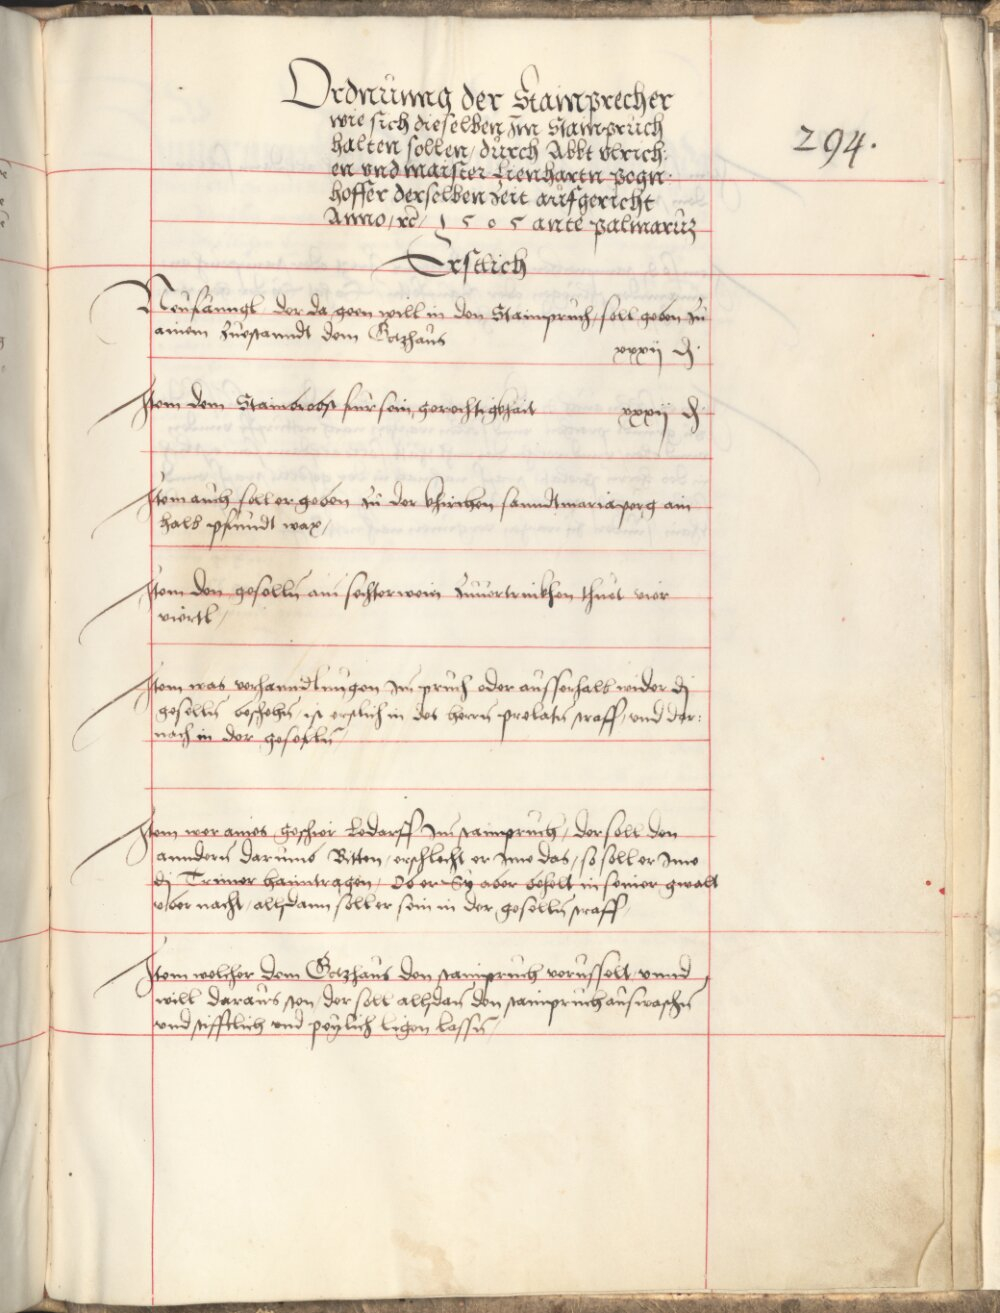 294.
Ordnunng der Stainprecher
wie sich dieselben Im Stainpruch
halten sollen, durch Abbt Vlrich:
en vnd maister Lienhartn pogn:
hoffer derselben Zeit aufgericht
Anno, rc̄, 1505 ante palmarum
Erstlich
Neufänngl der da geen will in den Stainpruch, soll geben zu
ainem zuestanndt dem Gotzhaus
xxxij d.
Item dem Stainbrobst fur sein gerechtigkhait xxxij d.
Item auch soll er geben zu der khirchen sanndt mariaperg ain
halb pfundt wax,
Item den geselln ain sechter wein zuuertrinkhen thuet vier
viertl,
Item was verhanndlungen Im pruch oder ausserhalb wider dj
geselln beschehn, ist erstlich in des herrn prelatn straff, vnd dar:
nach in der geselln,
Item wer aines geschier bedarff Im stainpruch, der soll den
anndern darumb Bitten, erschlecht er Ime das, so soll er Ime
dj Trimer haimtragen, Ob er Sy aber behelt in seiner gwalt
vber nacht, alsdann soll er sein in der geselln straff,
Item welcher dem Gotzhaus den stainpruch verusselt, vnnd
will daraus sten, der soll allsdan den stainpruch auswaschn
vnd stifftlich vnd peylich ligen lassn,